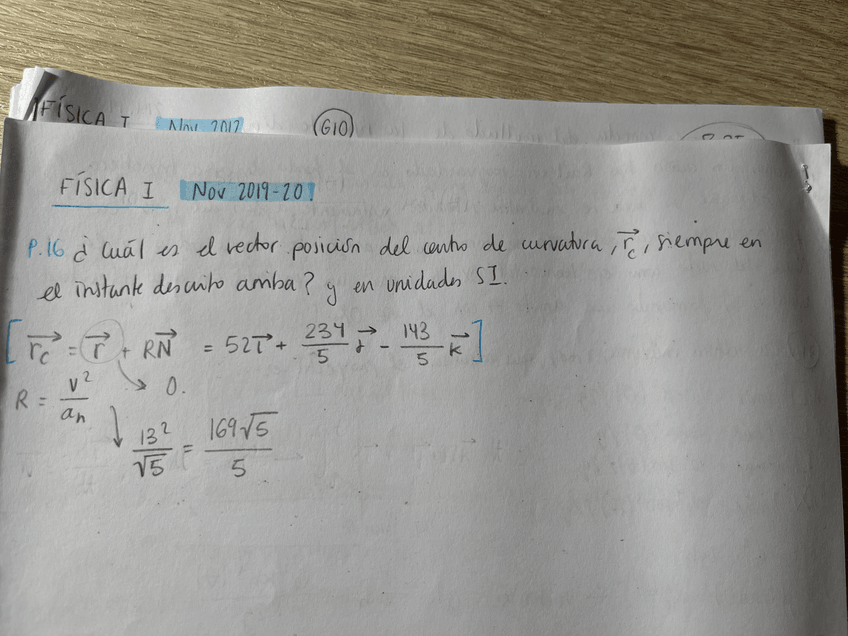 FÍSICA I Nov 2017 G10
FÍSICA I Nov 2019-20.
P.16 ¿ Cuál es el vector posición del centro de curvatura, r⃗c, siempre en
el instante descrito arriba? y en unidades SI.
[ r⃗c = r⃗ + RN⃗ = 52 i⃗ + 234/5 j⃗ - 143/5 k⃗ ]
R = v²/an ↘ 0.
↓ 13²/√5 = 169√5/5